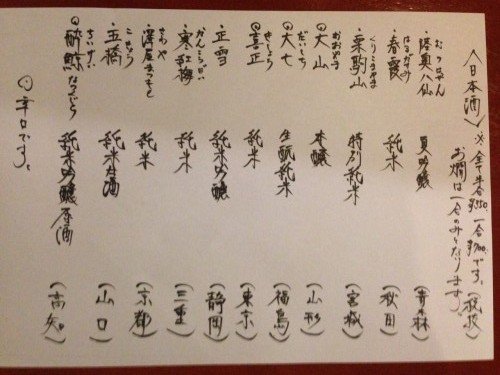 〈日本酒〉※全て半合¥350、一合¥700です。(税抜)
お燗は一合のみとなります。
・陸奥八仙 むつはっせん 夏吟醸 (青森)
・春霞 はるがすみ 純米 (秋田)
・栗駒山 くりこまやま 特別純米 (宮城)
◎大山 おおやま 本醸 (山形)
◎大七 だいしち 生酛純米 (福島)
◎喜正 きしょう 純米 (東京)
・正雪 純米吟醸 (静岡)
・寒紅梅 かんこうばい 純米 (三重)
・澤屋まつもと さわや 純米 (京都)
・五橋 ごきょう 純米 酒 (山口)
◎酔鯨 すいげい なつくじら 純米吟醸原酒 (高知)
◎辛口です。